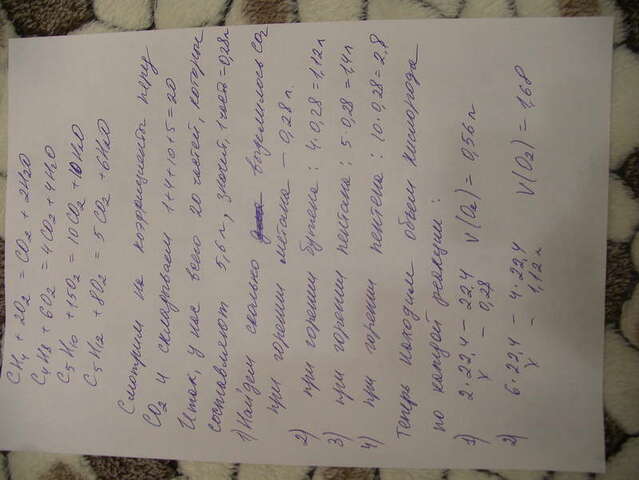 CH4 + 2O2 = CO2 + 2H2O
C4H8 + 6O2 = 4CO2 + 4H2O
C5H10 + 15O2 = 10CO2 + 10H2O
C5H12 + 8O2 = 5CO2 + 6H2O
Смотрим на коэффициенты перед
CO2 и складываем 1+4+10+5=20
Итак, у нас всего 20 частей, которые
составляют 5,6 л, значит, 1 часть=0,28л
1) Найдем сколько выделилось CO2
при горении метана – 0,28 л.
2) при горении бутена: 4·0,28=1,12л
3) при горении пентана: 5·0,28=1,4л
4) при горении пентена: 10·0,28=2,8
Теперь находим объем кислорода
по каждой реакции:
1) 2·22,4 – 22,4 V(O2) = 0,56л
x – 0,28
2) 6·22,4 – 4·22,4 V(O2) = 1,68
x – 1,12л